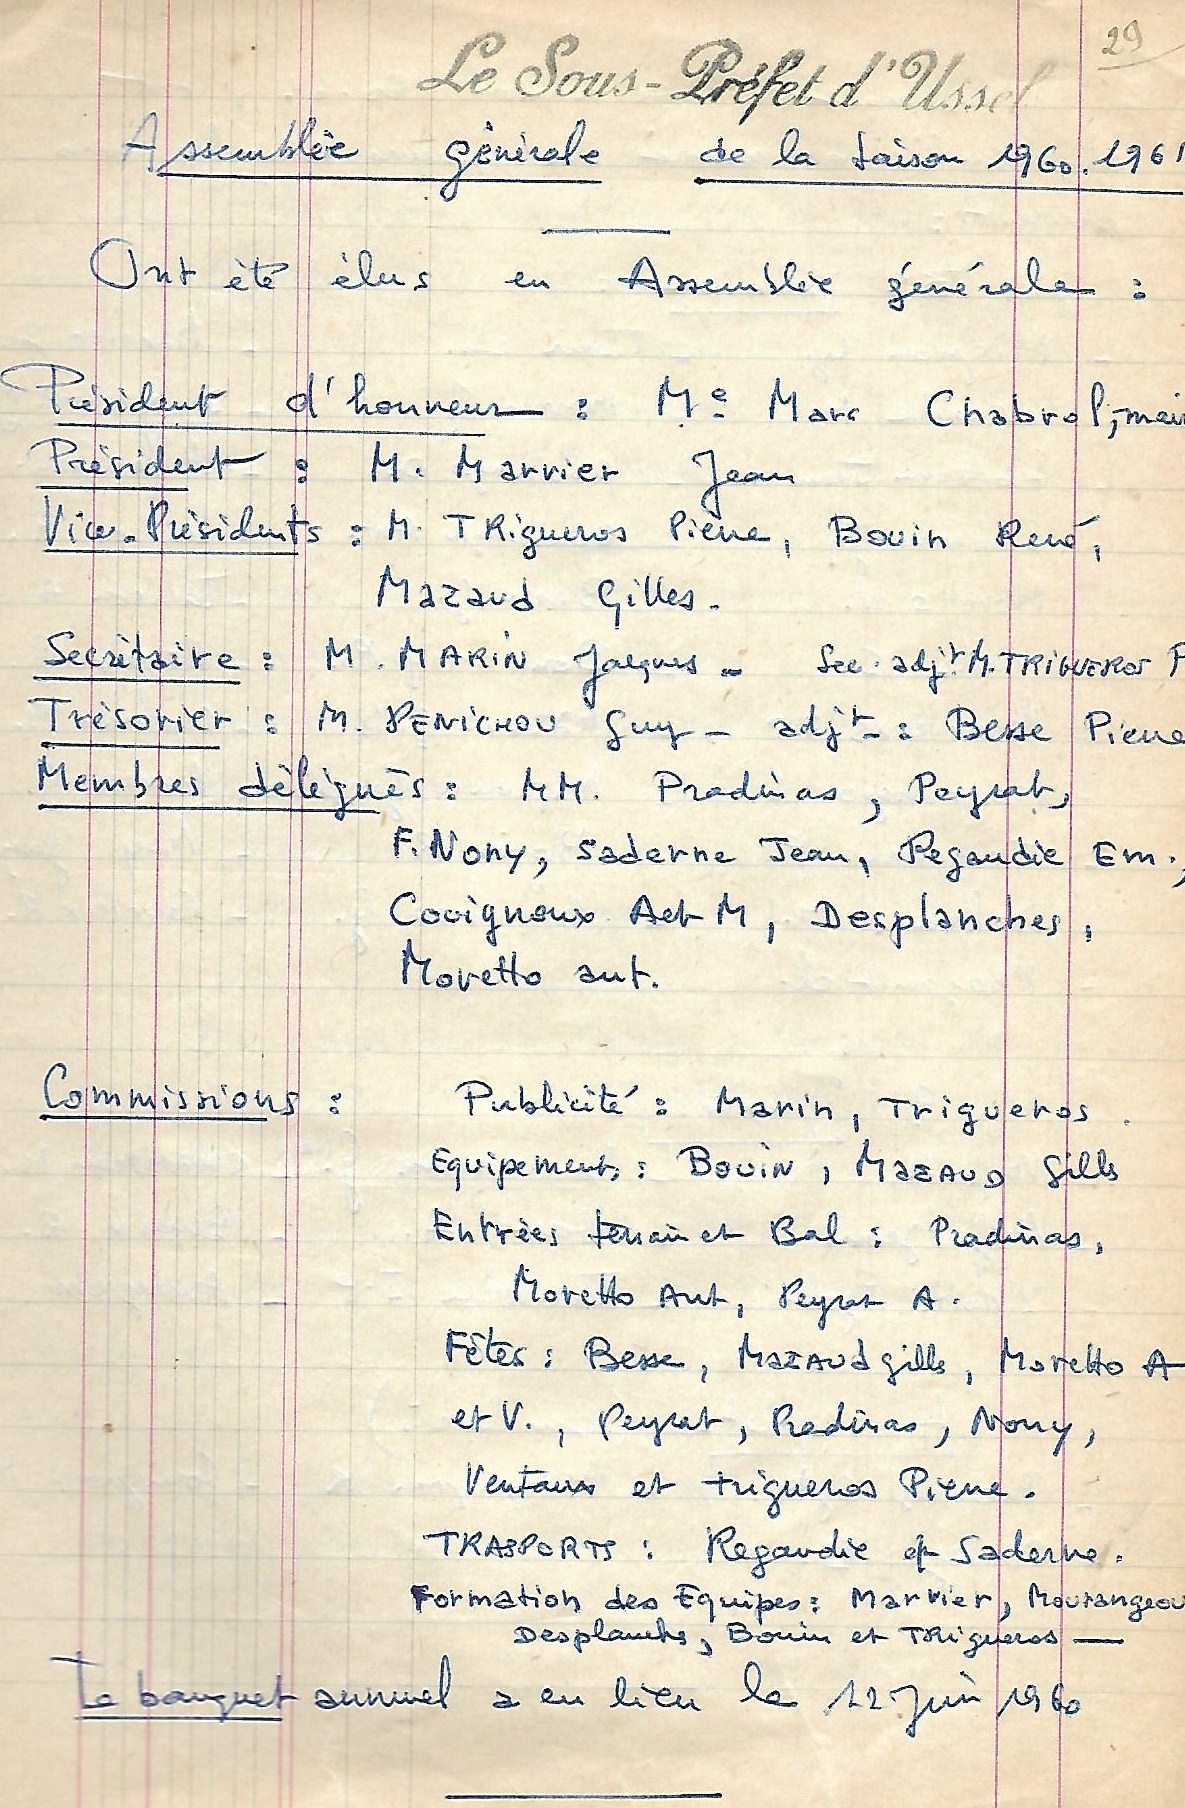 29
Le Sous-Préfet d'Ussel
Assemblée générale de la saison 1960.1961
Ont été élus en Assemblée générale :
Président d'honneur : Me Marc Chabrol, mai
Président : M. Marvier Jean
Vice-Présidents : M. TRigueros Pierre, Bouin René,
Mazaud Gilles.
Secrétaire : M. MARIN Jacques - Sec. adjt M. TRIGUEROS P
Trésorier : M. PENICHOU Guy - adjt : Besse Pierre
Membres délégués : MM. Pradinas, Peyrat,
F. Nony, Saderne Jean, Regaudie Em.,
Couignoux A et M, Desplanches,
Moretto ant.
Commissions : Publicité : Marin, Trigueros.
Equipements : BOUIN, MAZAUD Gills
Entrées terrain et Bal : Pradinas,
Moretto Ant, Peyrat A.
Fêtes : Besse, MAZAUD gills, Moretto A
et V., Peyrat, Pradinas, Nony,
Ventaux et trigueros Pierre.
TRASPORTS : Regaudie et Saderne.
Formation des Equipes : Marvier, Mourangeou
Desplanches, Bouin et TRigueros —
Le banquet annuel a eu lieu le 12 Juin 1960